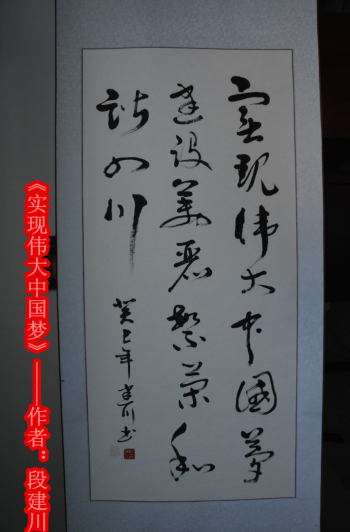 实现伟大中国梦
建设美丽繁荣和
谐四川
癸巳年 建川书
《实现伟大中国梦》——作者：段建川